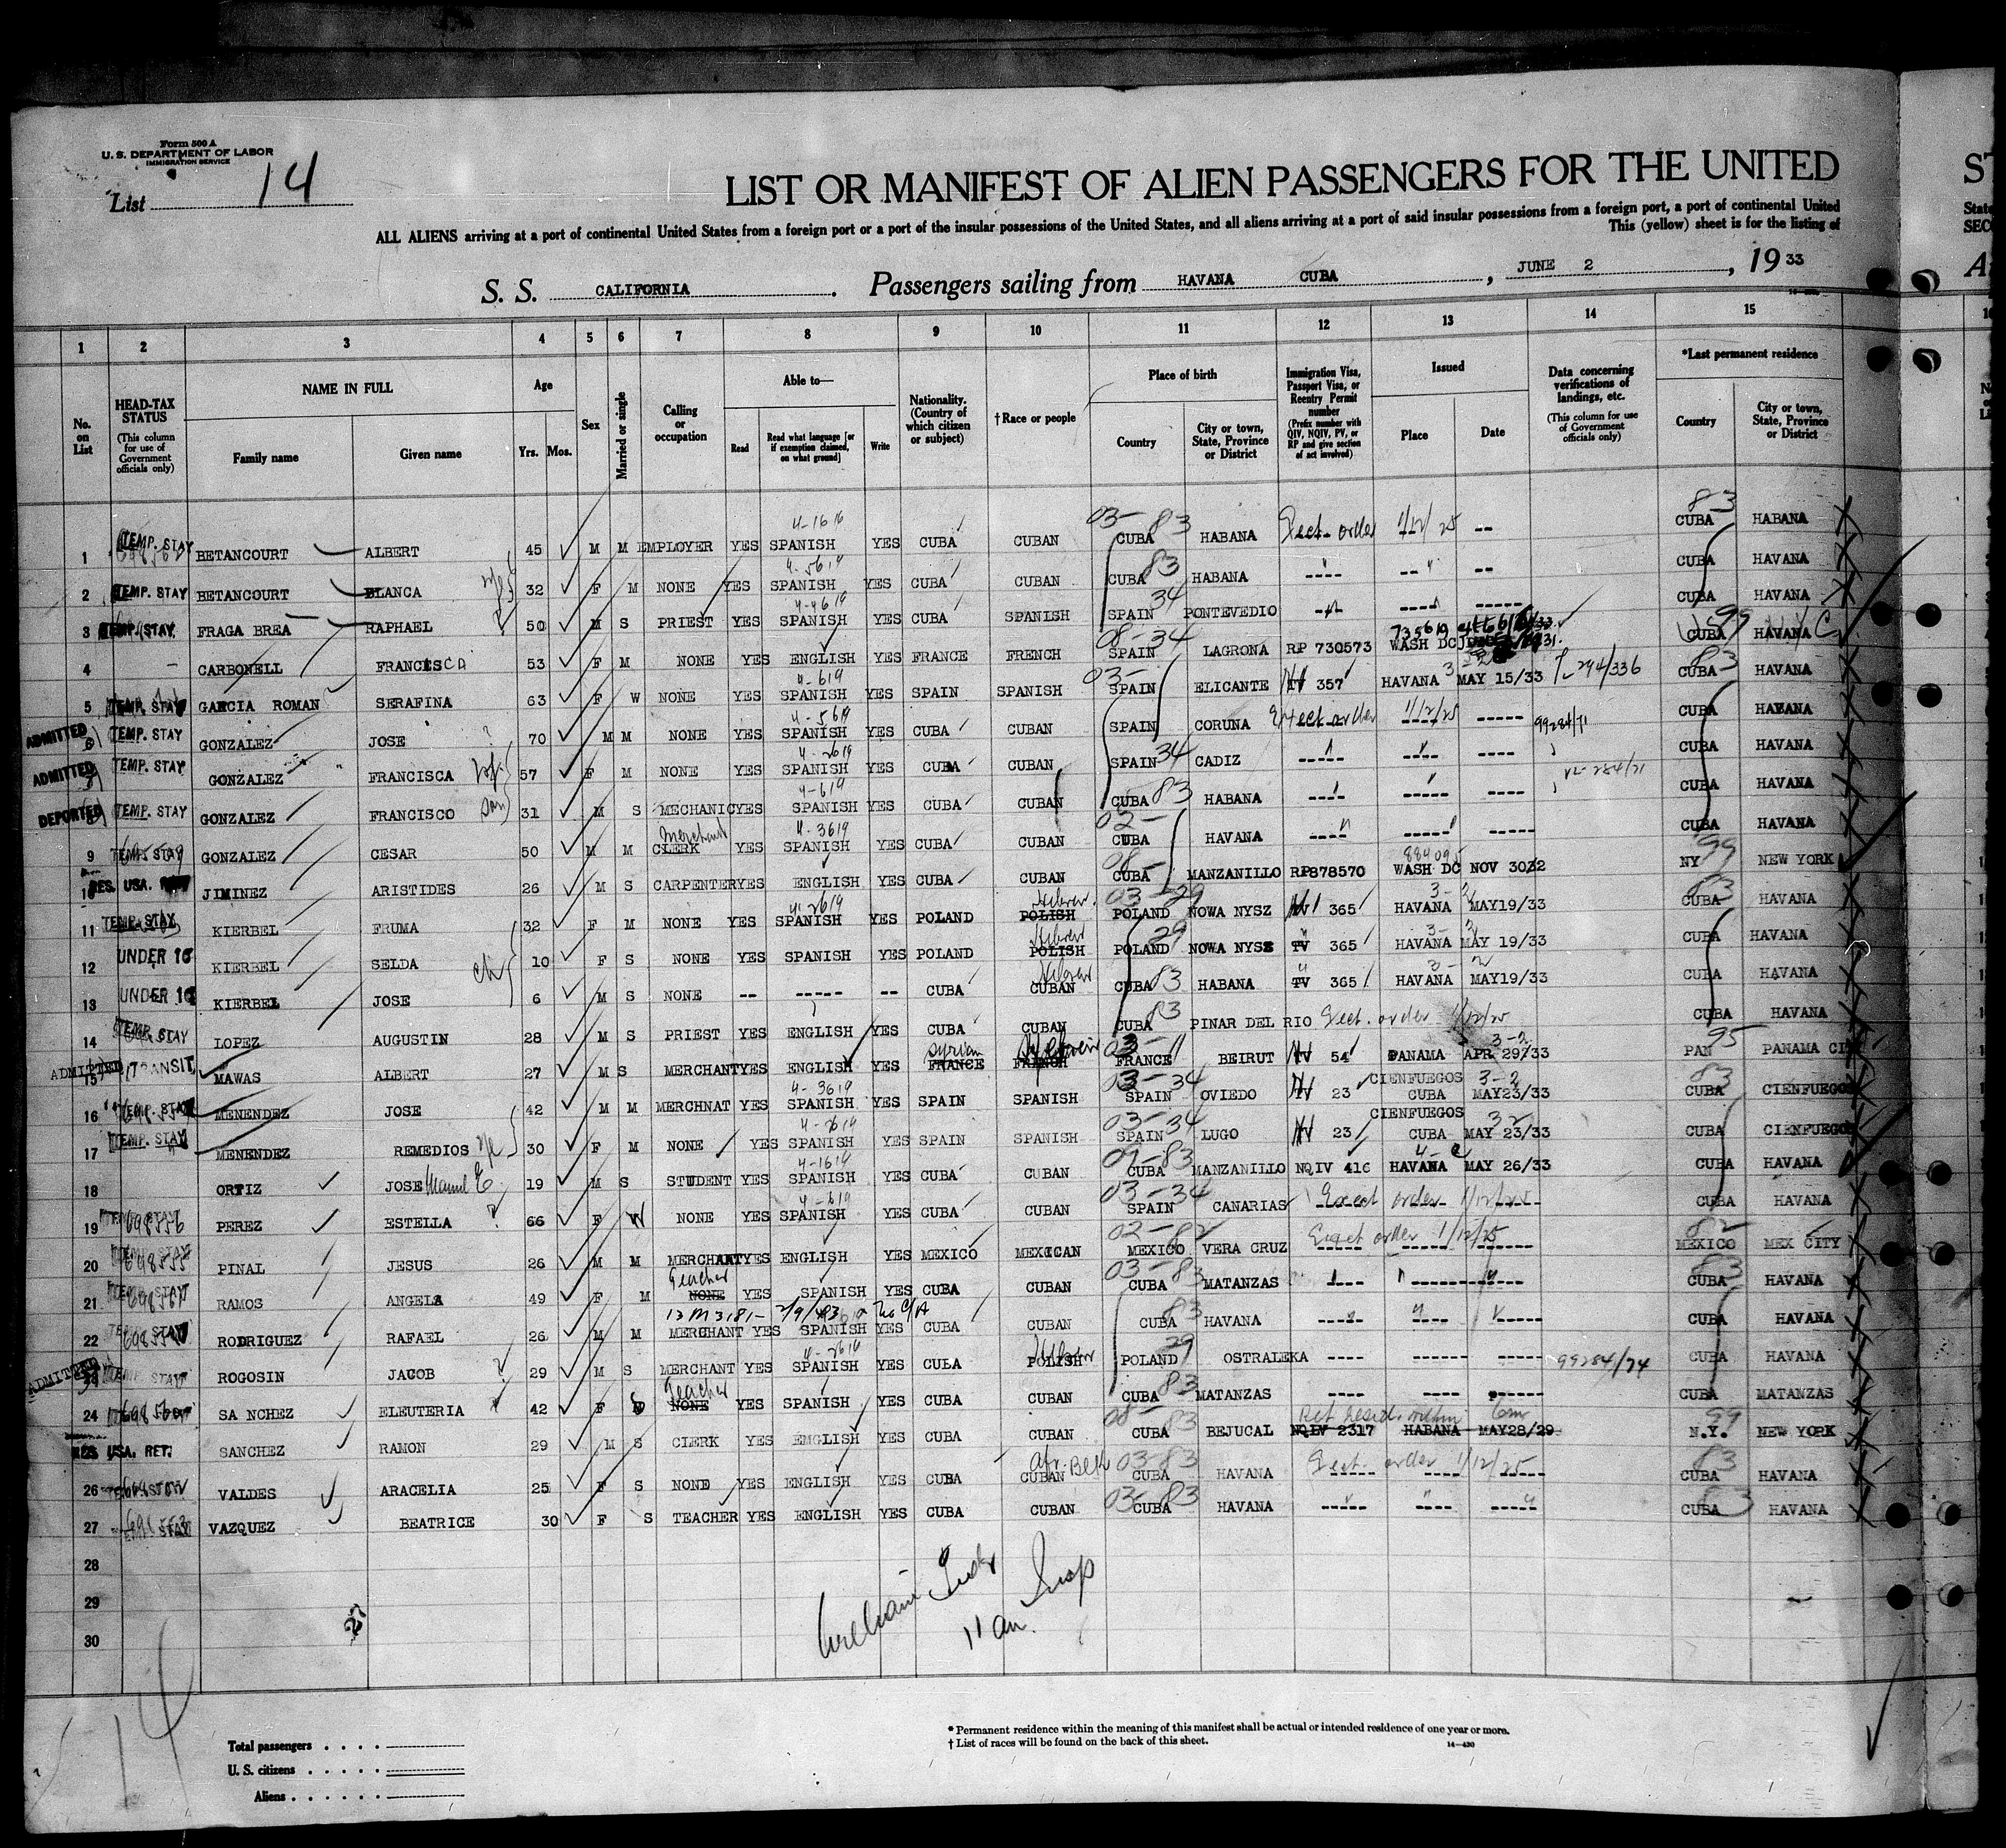 Form 500 A
U. S. DEPARTMENT OF LABOR
IMMIGRATION SERVICE
List 14
LIST OR MANIFEST OF ALIEN PASSENGERS FOR THE UNITED
ALL ALIENS arriving at a port of continental United States from a foreign port or a port of the insular possessions of the United States, and all aliens arriving at a port of said insular possessions from a foreign port, a port of continental United
This (yellow) sheet is for the listing of
S. S. CALIFORNIA. Passengers sailing from HAVANA CUBA, JUNE 2, 1933
1 2 3 4 5 6 7 8 9 10 11 12 13 14 15
No. on List
HEAD-TAX STATUS (This column for use of Government officials only)
NAME IN FULL
Family name Given name
Age Yrs. Mos.
Sex
Married or single
Calling or occupation
Able to— Read Read what language [or if exemption claimed, on what ground] Write
Nationality. (Country of which citizen or subject)
† Race or people
Place of birth Country City or town, State, Province or District
Immigration Visa, Passport Visa, or Reentry Permit number (Prefix number with QIV, NQIV, PV, or RP and give section of act involved)
Issued Place Date
Data concerning verifications of landings, etc. (This column for use of Government officials only)
*Last permanent residence Country City or town, State, Province or District
1 TEMP. STAY BETANCOURT ALBERT 45 M M EMPLOYER YES SPANISH YES CUBA CUBAN CUBA HABANA order -- CUBA HABANA
2 TEMP. STAY BETANCOURT BLANCA 32 F M NONE YES SPANISH YES CUBA CUBAN CUBA HABANA ---- -- -- CUBA HAVANA
3 TEMP. STAY FRAGA BREA RAPHAEL 50 M S PRIEST YES SPANISH YES CUBA SPANISH SPAIN PONTEVEDIO ---- ----- CUBA HAVANA
4 CARBONELL FRANCISCA 53 F M NONE YES ENGLISH YES FRANCE FRENCH SPAIN LAGRONA RP 730573 WASH DC CUBA HAVANA
5 TEMP. STAY GARCIA ROMAN SERAFINA 63 F W NONE YES SPANISH YES SPAIN SPANISH SPAIN ELICANTE 357 HAVANA MAY 15/33 CUBA HAVANA
ADMITTED 6 TEMP. STAY GONZALEZ JOSE 70 M M NONE YES SPANISH YES CUBA CUBAN SPAIN CORUNA order 1/12/25 ----- 99284/71 CUBA HAVANA
ADMITTED TEMP. STAY GONZALEZ FRANCISCA 57 F M NONE YES SPANISH YES CUBA CUBAN SPAIN CADIZ ---- ---- CUBA HAVANA
DEPORTED TEMP. STAY GONZALEZ FRANCISCO son 31 M S MECHANIC YES SPANISH YES CUBA CUBAN CUBA HABANA ---- ----- ----- CUBA HAVANA
9 TEMP. STAY GONZALEZ CESAR 50 M M CLERK Merchant YES SPANISH YES CUBA CUBAN CUBA HAVANA ---- ----- ----- CUBA HAVANA
10 RES. USA. JIMINEZ ARISTIDES 26 M S CARPENTER YES ENGLISH YES CUBA CUBAN CUBA MANZANILLO RP878570 WASH DC NOV 3032 NY NEW YORK
11 TEMP. STAY KIERBEL FRUMA 32 F M NONE YES SPANISH YES POLAND POLISH Hebrew POLAND NOWA NYSZ 365 HAVANA MAY19/33 CUBA HAVANA
12 UNDER 16 KIERBEL SELDA 10 F S NONE YES SPANISH YES POLAND POLISH Hebrew POLAND NOWA NYSZ TV 365 HAVANA MAY 19/33 CUBA HAVANA
13 UNDER 16 KIERBEL JOSE 6 M S NONE -- ----- -- CUBA CUBAN Hebrew CUBA HABANA TV 365 HAVANA MAY19/33 CUBA HAVANA
14 TEMP. STAY LOPEZ AUGUSTIN 28 M S PRIEST YES ENGLISH YES CUBA CUBAN CUBA PINAR DEL RIO order 1/12/25 CUBA HAVANA
ADMITTED 15 TRANSIT MAWAS ALBERT 27 M S MERCHANT YES ENGLISH YES FRANCE Syrian FRENCH FRANCE BEIRUT 54 PANAMA APR 29/33 PAN PANAMA CITY
16 TEMP. STAY MENENDEZ JOSE 42 M M MERCHNAT YES SPANISH YES SPAIN SPANISH SPAIN OVIEDO 23 CIENFUEGOS CUBA MAY23/33 CUBA CIENFUEGOS
17 TEMP. STAY MENENDEZ REMEDIOS 30 F M NONE YES SPANISH YES SPAIN SPANISH SPAIN LUGO 23 CIENFUEGOS CUBA MAY 23/33 CUBA CIENFUEGOS
18 ORTIZ JOSE Manuel E 19 M S STUDENT YES SPANISH YES CUBA CUBAN CUBA MANZANILLO NQIV 416 HAVANA MAY 26/33 CUBA HAVANA
19 698556 PEREZ ESTELLA 66 F W NONE YES SPANISH YES CUBA CUBAN SPAIN CANARIAS order CUBA HAVANA
20 698555 PINAL JESUS 26 M M MERCHANT YES ENGLISH YES MEXICO MEXICAN MEXICO VERA CRUZ order 1/12/25 MEXICO MEX CITY
21 RAMOS ANGELA 49 F M NONE Teacher YES SPANISH YES CUBA CUBAN CUBA MATANZAS CUBA HAVANA
22 RODRIGUEZ RAFAEL 26 M M MERCHANT YES SPANISH YES CUBA CUBAN CUBA HAVANA ---- ---- ----- CUBA HAVANA
ADMITTED TEMP. STAY ROGOSIN JACOB 29 M S MERCHANT YES SPANISH YES CULA POLISH Hebrew POLAND OSTRALEKA ---- ---- ----- 99284/74 CUBA HAVANA
24 SA NCHEZ ELEUTERIA 42 F S NONE Teacher YES SPANISH YES CUBA CUBAN CUBA MATANZAS ---- ---- ------ CUBA MATANZAS
RES USA. RET. SANCHEZ RAMON 29 M S CLERK YES ENGLISH YES CUBA CUBAN CUBA BEJUCAL NQIV 2317 HABANA MAY28/29 N.Y. NEW YORK
26 VALDES ARACELIA 25 F S NONE YES ENGLISH YES CUBA CUBAN Afr. Blk CUBA HAVANA order 1/12/25 CUBA HAVANA
27 VAZQUEZ BEATRICE 30 F S TEACHER YES ENGLISH YES CUBA CUBAN CUBA HAVANA ----- ---- ----- CUBA HAVANA
28
29
30
27
William Insp
11 am.
14
* Permanent residence within the meaning of this manifest shall be actual or intended residence of one year or more.
† List of races will be found on the back of this sheet.
14—430
Total passengers . . . .
U. S. citizens . . . . .
Aliens . . . . . .